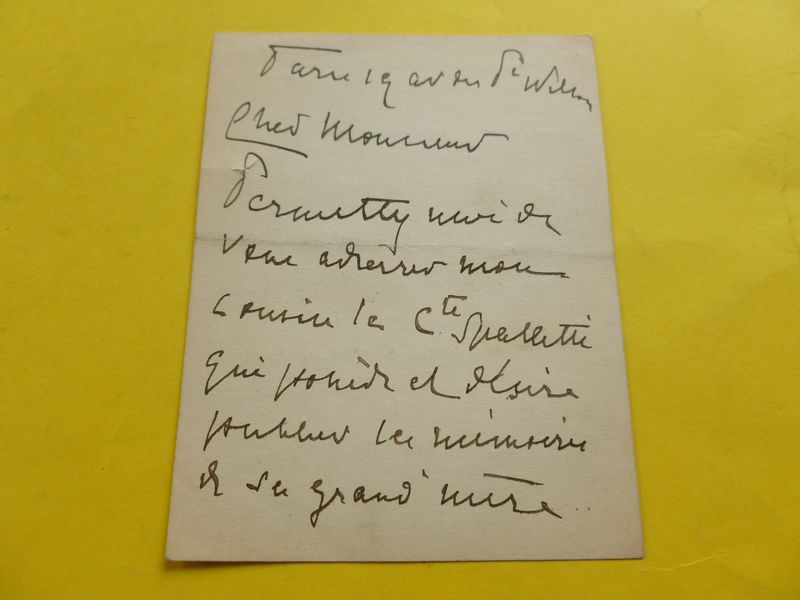 Paris 19 av du Pt Wilson
Cher Monsieur
Permettez moi de
vous adresser mon
cousin le Cte Spalletti
qui possède et désire
publier les mémoires
de sa grand'mère..